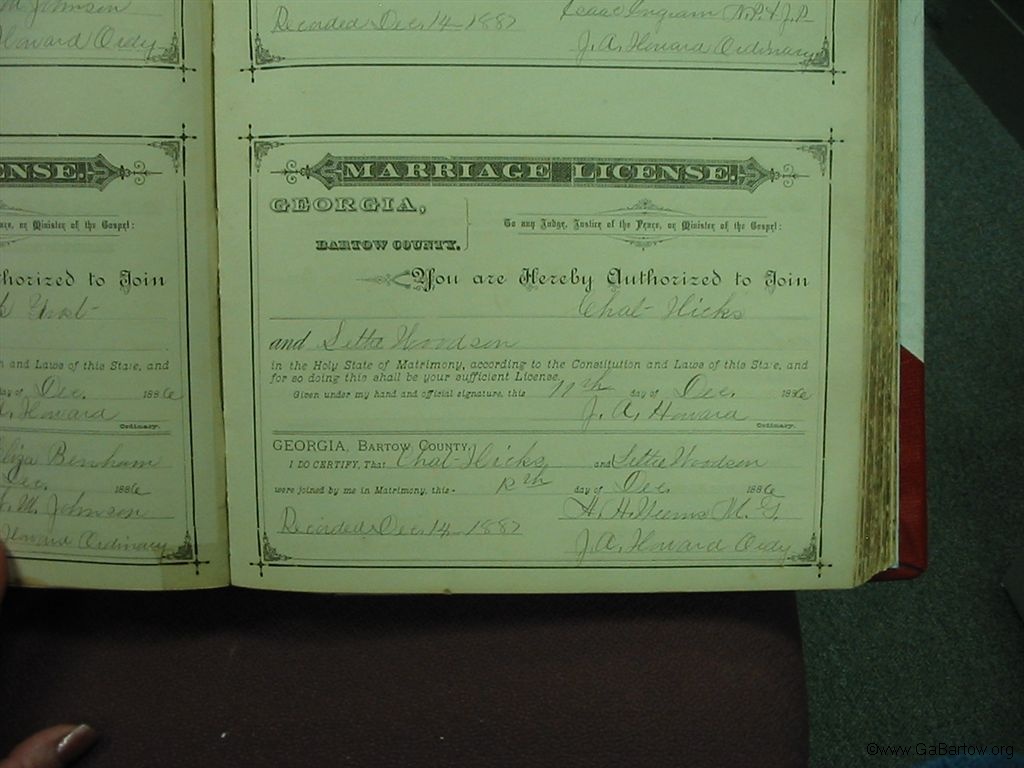 M Johnson
Howard Ordy
Recorded Dec. 14 1887
Isaac Ingram N.P. & J.P.
J. A. Howard Ordinary
NSE.
Peace, or Minister of the Gospel:
thorized to Join
n and Laws of this State, and
day of Dec. 1886
A. Howard
Ordinary.
Eliza Benham
Dec. 1886
M. Johnson
Howard Ordinary
MARRIAGE LICENSE.
GEORGIA,
BARTOW COUNTY.
To any Judge, Justice of the Peace, or Minister of the Gospel:
You are Hereby Authorized to Join
Chat Hicks
and Lettie Woodson
in the Holy State of Matrimony, according to the Constitution and Laws of this State, and
for so doing this shall be your sufficient License.
Given under my hand and official signature, this 11th day of Dec. 1886
J. A. Howard
Ordinary.
GEORGIA, BARTOW COUNTY,
I DO CERTIFY, That Chat Hicks and Lettie Woodson
were joined by me in Matrimony, this 12th day of Dec. 1886
H. H. M. G.
Recorded Dec. 14 1887
J. A. Howard Ordy
©www.GaBartow.org